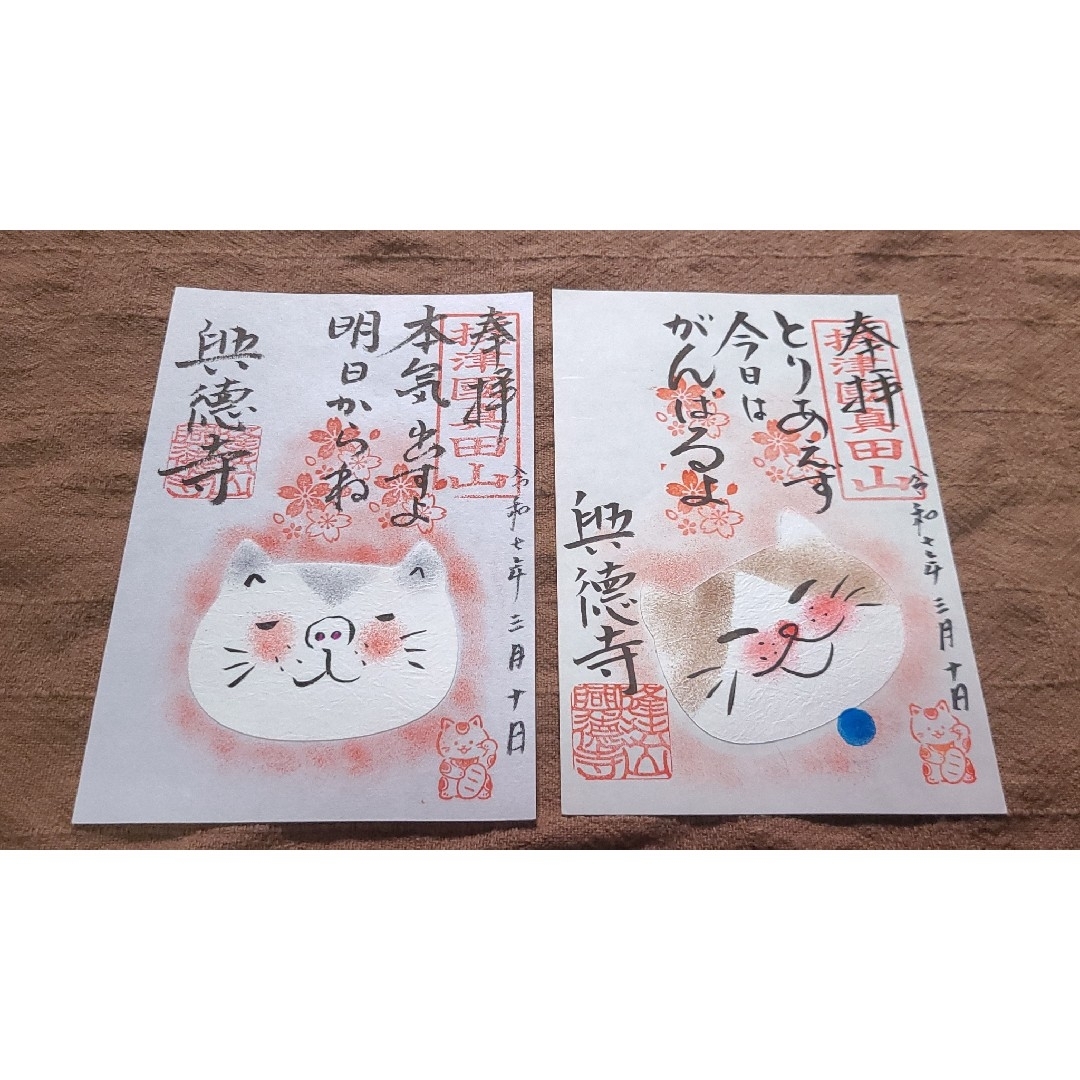 奉拝
摂津國真田山
本気出すよ
明日からね
興徳寺
令和七年三月十日
奉拝
摂津國真田山
とりあえず
今日は
がんばるよ
興徳寺
令和七年三月十日
興徳寺